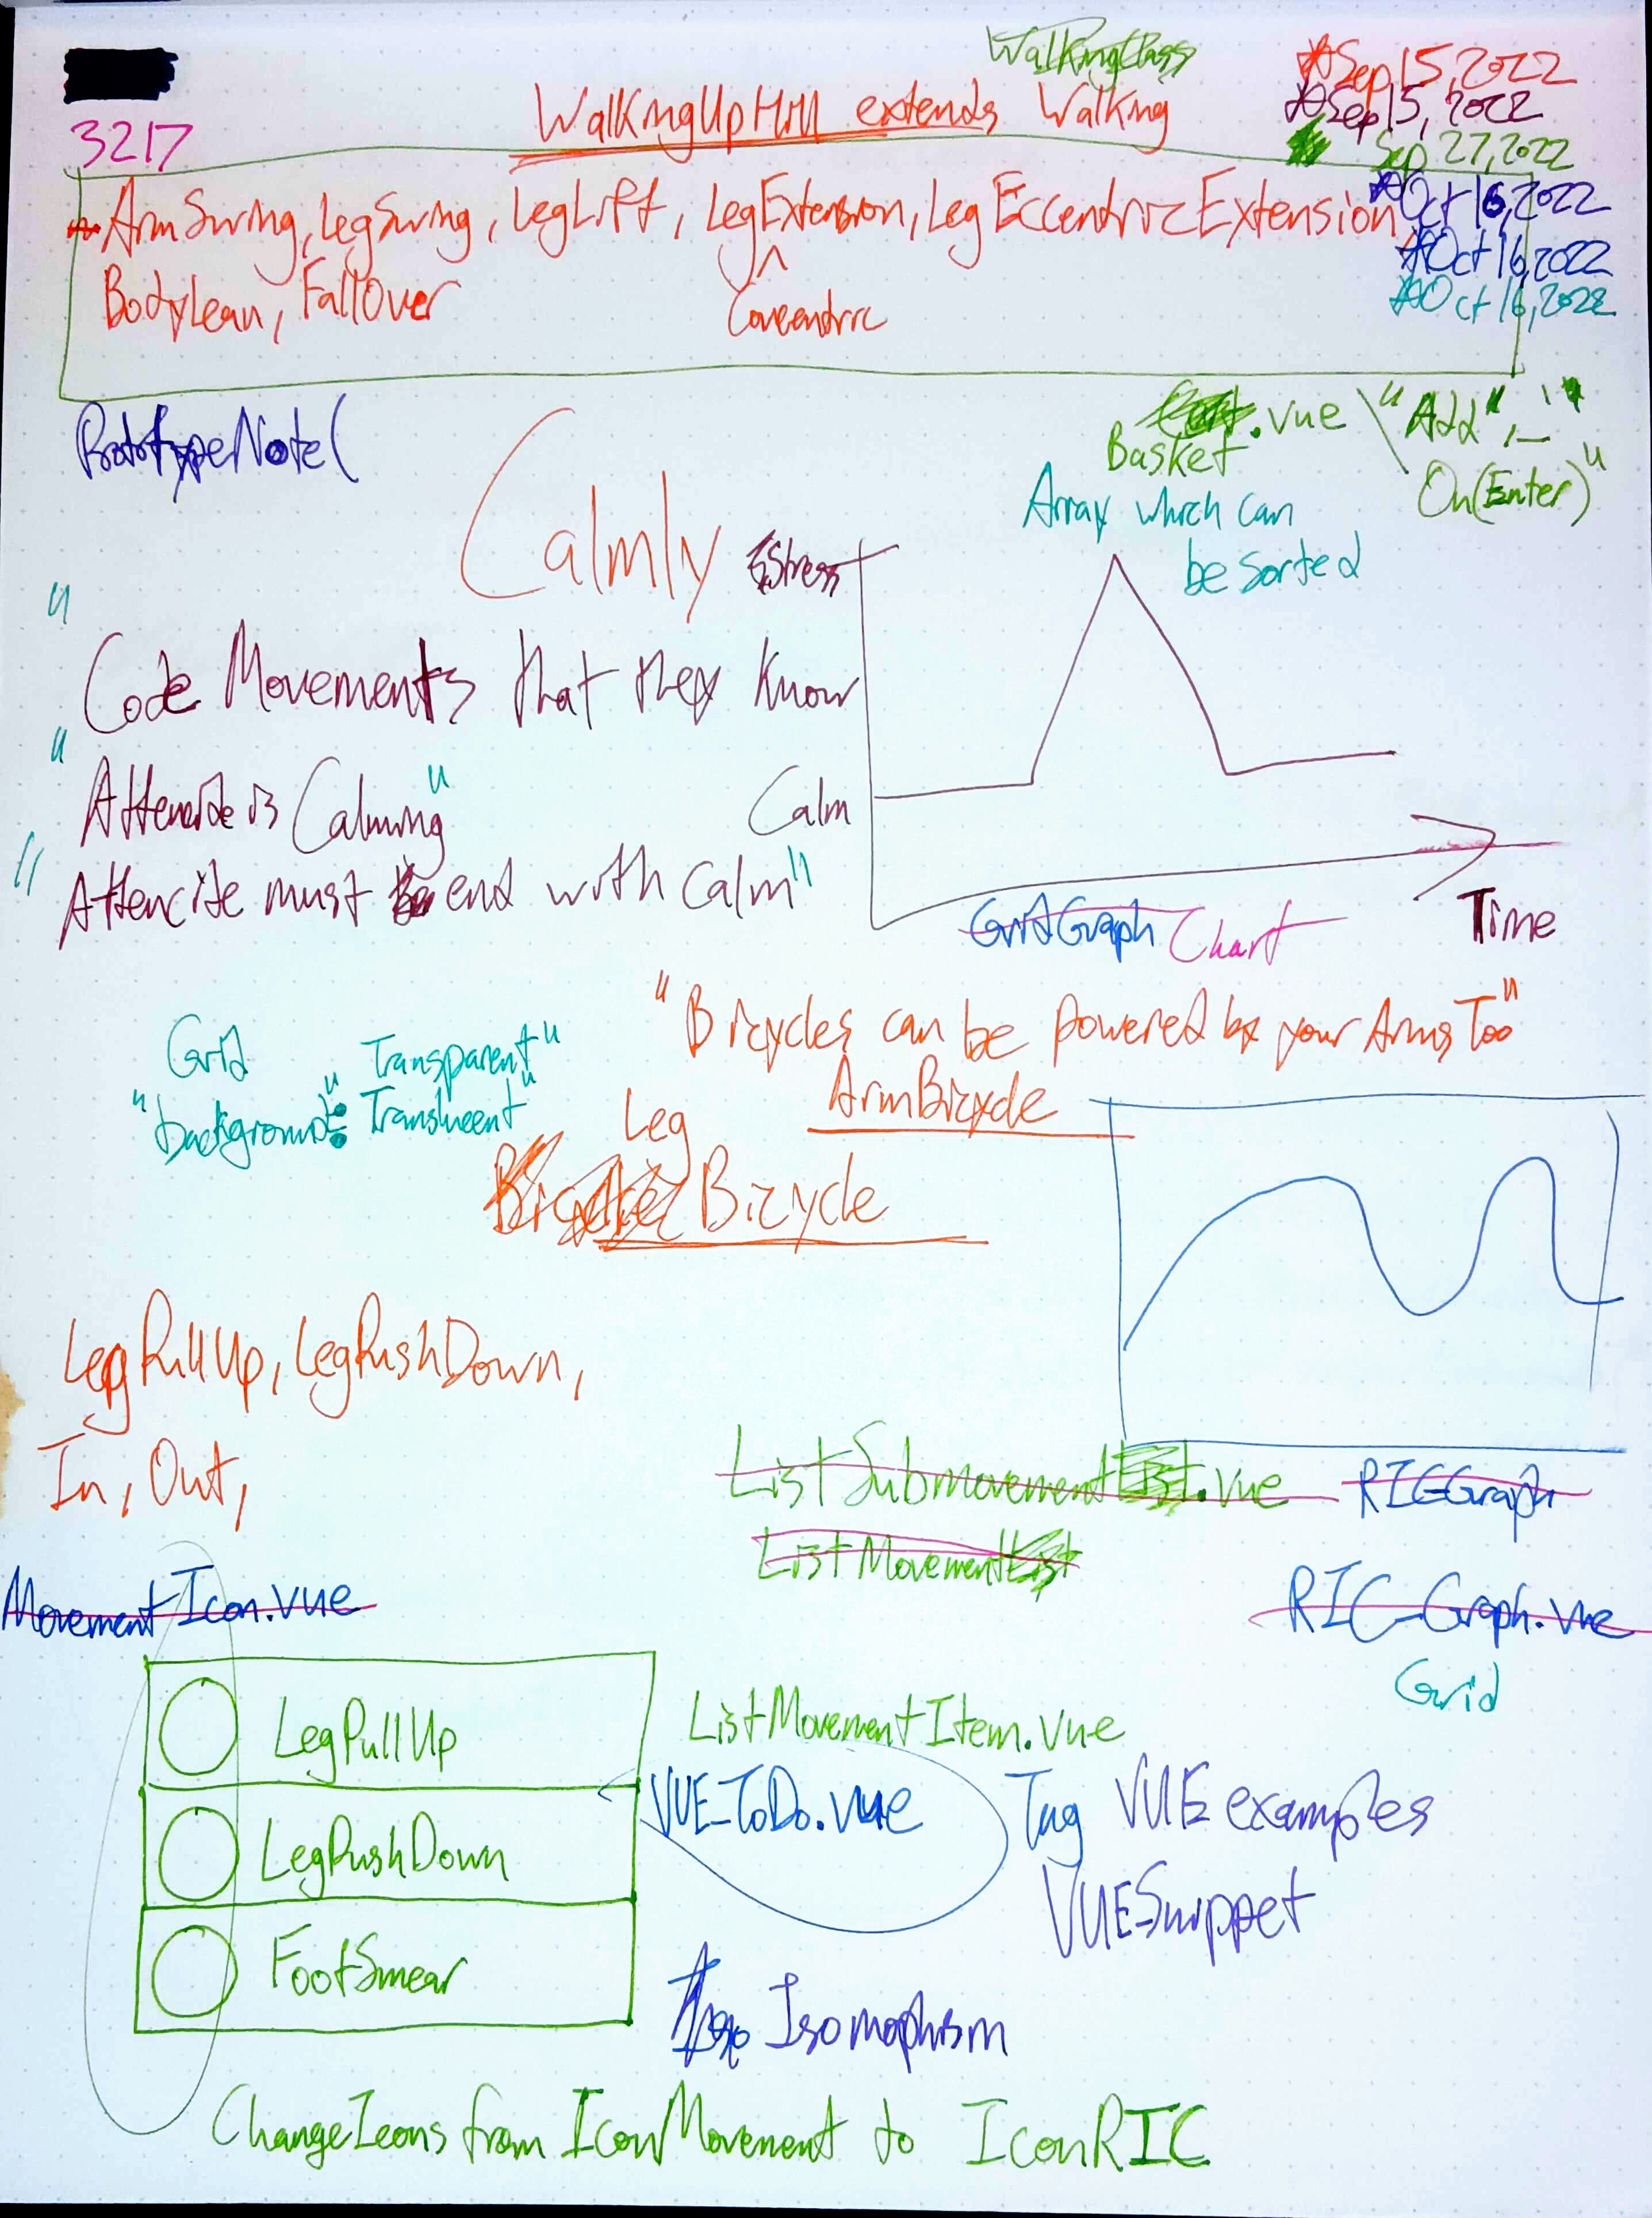 WalkingClass
Sep 15, 2022
3217
WalkingUpHill extends Walking
Sep 15, 2022
Sep 27, 2022
ArmSwing, LegSwing, LegLift, LegExtension, LegEccentricExtension
Oct 16, 2022
Oct 16, 2022
BodyLean, FallOver
Concentric
Oct 16, 2022
PrototypeNote(
.vue \ "Add", _"
Basket
On(Enter)"
Array which can
be sorted
Calmly
Stress
"Code Movements that they know
"
is Calming"
Calm
"
must end with Calm"
GridGraph Chart
Time
"Bicycles can be powered by your Arms Too"
Grid
Transparent"
"background": "Translucent"
ArmBicycle
Leg
Bicycle
LegPullUp, LegPushDown,
In, Out,
ListSubmovement .vue
RICGraph
ListMovementList
MovementIcon.vue
RIC_Graph.vue
Grid
LegPullUp
LegPushDown
FootSmear
ListMovementItem.vue
VUE_ToDo.vue
Tag VUE examples
VUESnippet
Isomophism
ChangeIcons from IconMovement to IconRIC